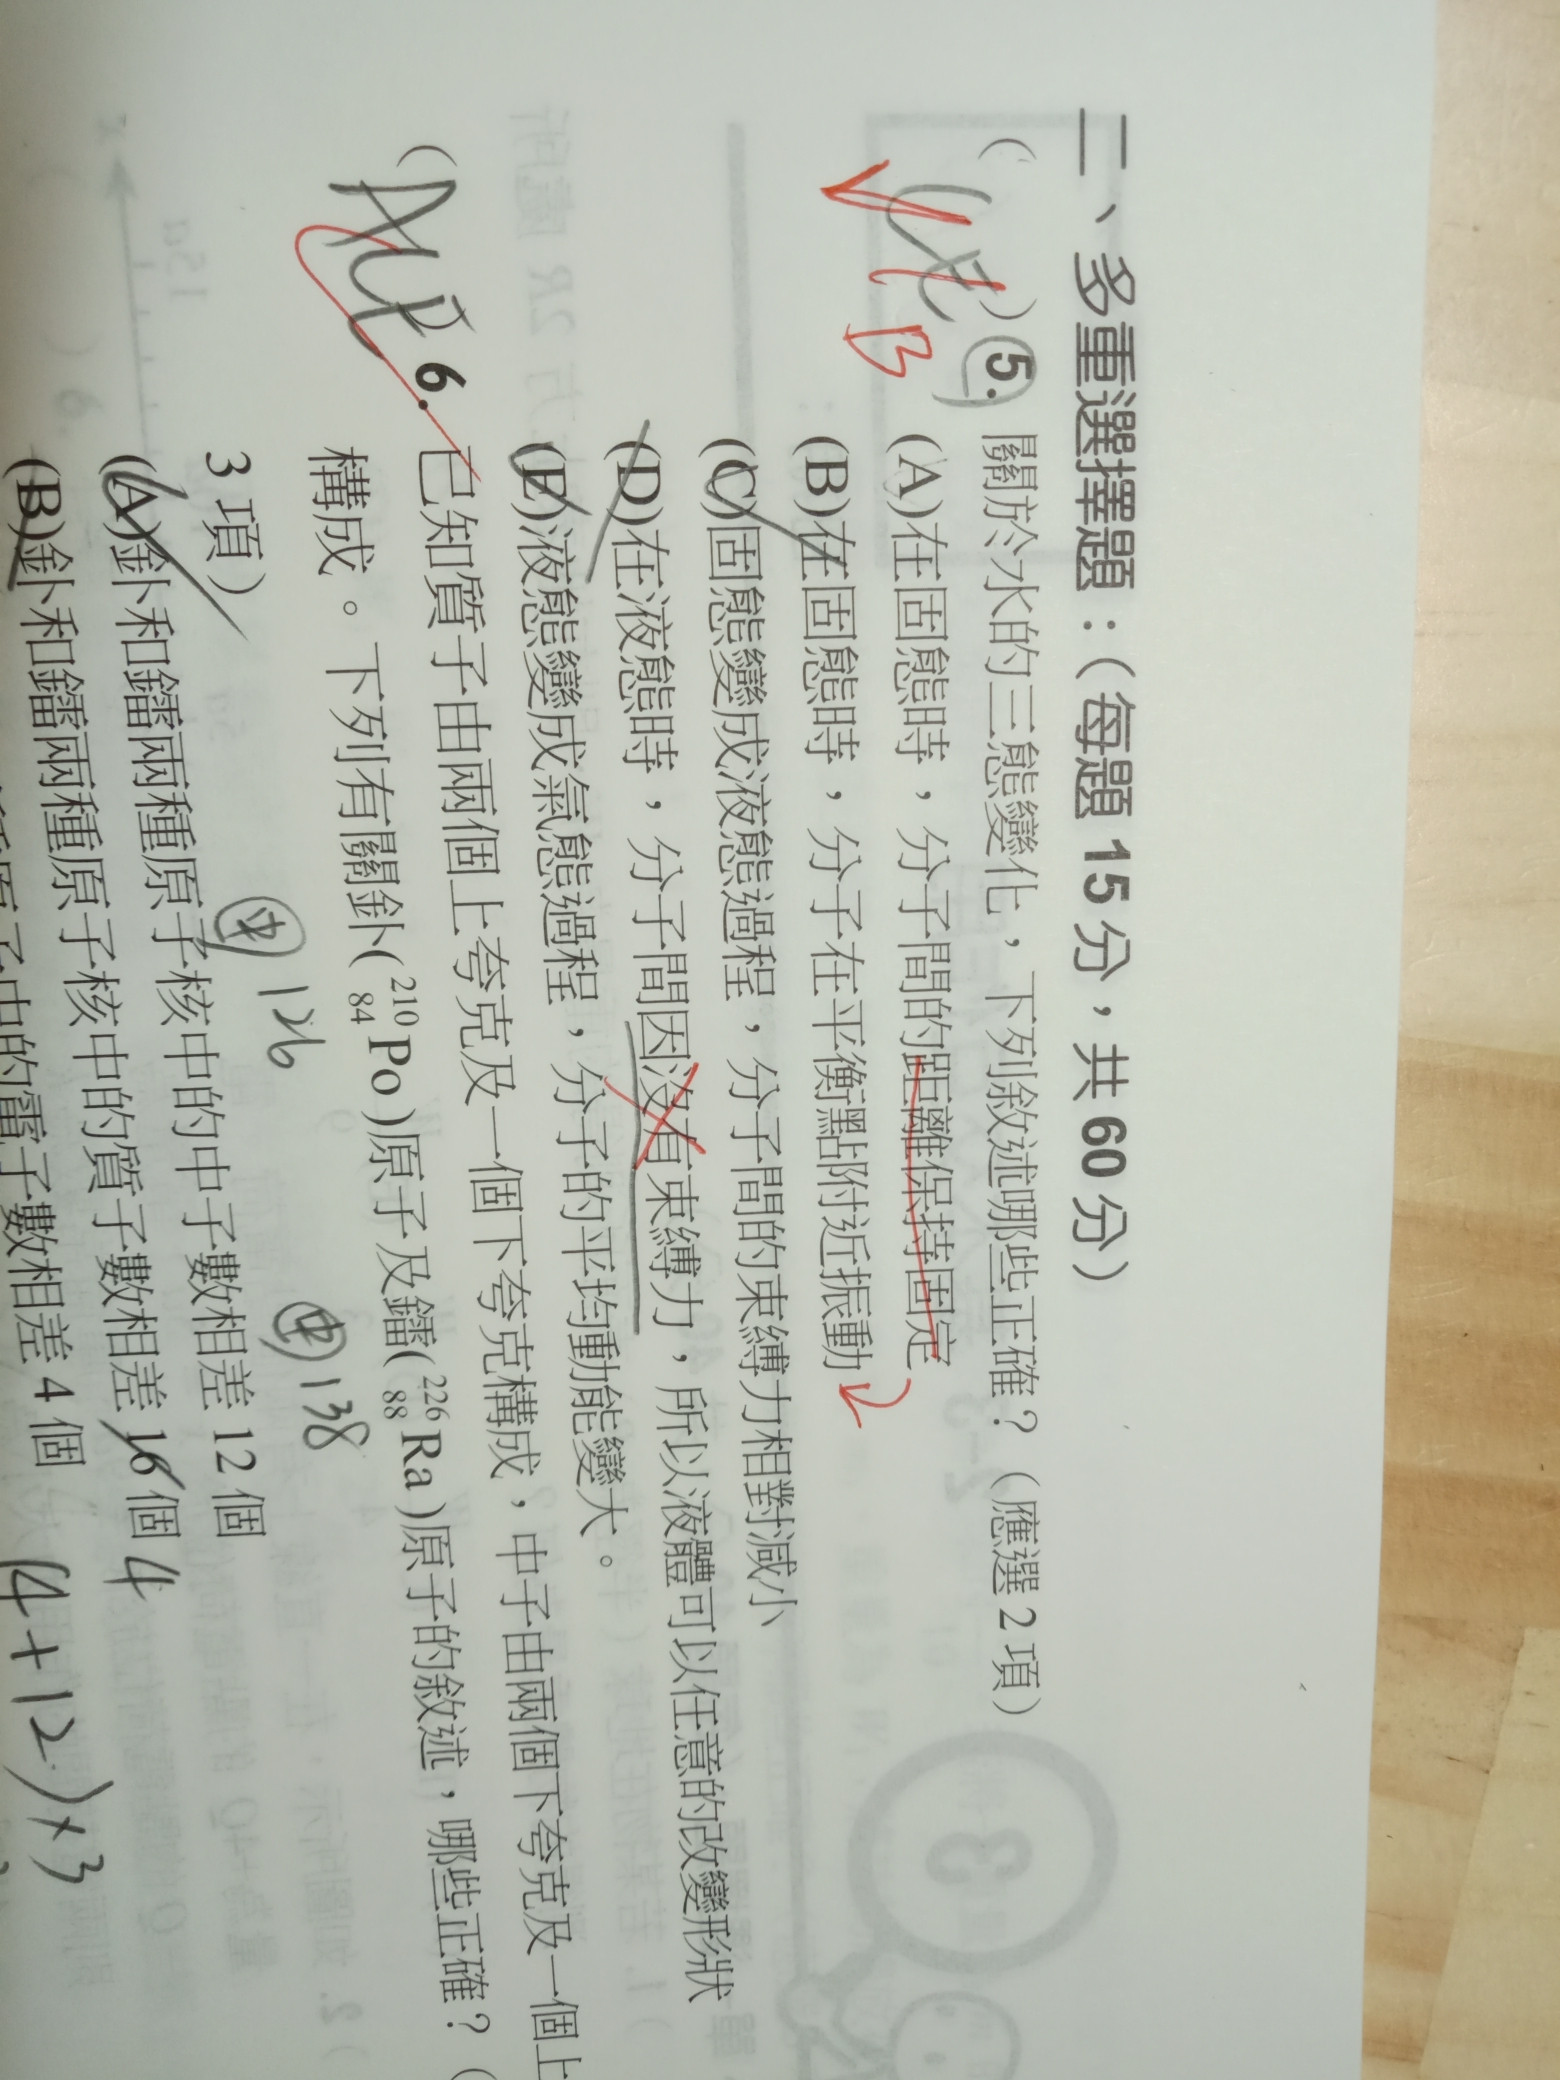 二、多重選擇題：(每題 15 分，共 60 分)
( ) 5. 關於水的三態變化，下列敘述哪些正確？(應選 2 項)
B
(A)在固態時，分子間的距離保持固定
(B)在固態時，分子在平衡點附近振動
(C)固態變成液態過程，分子間的束縛力相對減小
(D)在液態時，分子間因沒有束縛力，所以液體可以任意的改變形狀
(E)液態變成氣態過程，分子的平均動能變大。
( ) 6. 已知質子由兩個上夸克及一個下夸克構成，中子由兩個下夸克及一個上
構成。下列有關釙(²¹⁰₈₄Po)原子及鐳(²²⁶₈₈Ra)原子的敘述，哪些正確？(
3 項)
中 126 中 138
(A)釙和鐳兩種原子核中的中子數相差 12 個
(B)釙和鐳兩種原子核中的質子數相差 16 個 4
原子中的電子數相差 4 個 (4+12)×3